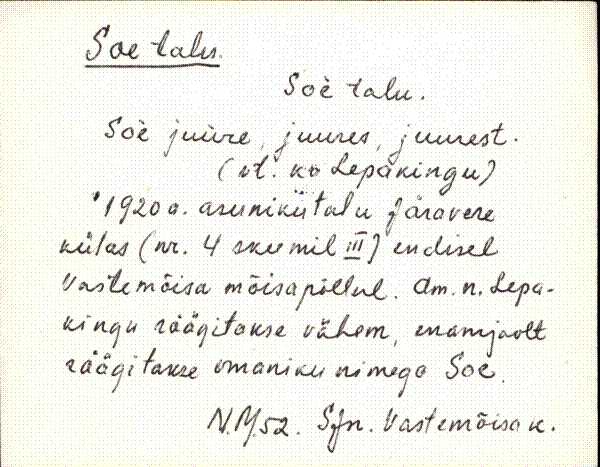 Soe talu.
Soè talu.
Soè juure, juures, juurest.
(vt. ka Lepakingu)
1920 a. asunikutalu Järavere
külas (nr. 4 skeemil III) endisel
Vastemõisa mõisapõllul. Am. n. Lepa-
kingu räägitakse vähem, enamjaolt
räägitakse omaniku nimega Soe.
N.M. 52. SJn. Vastemõisa k.